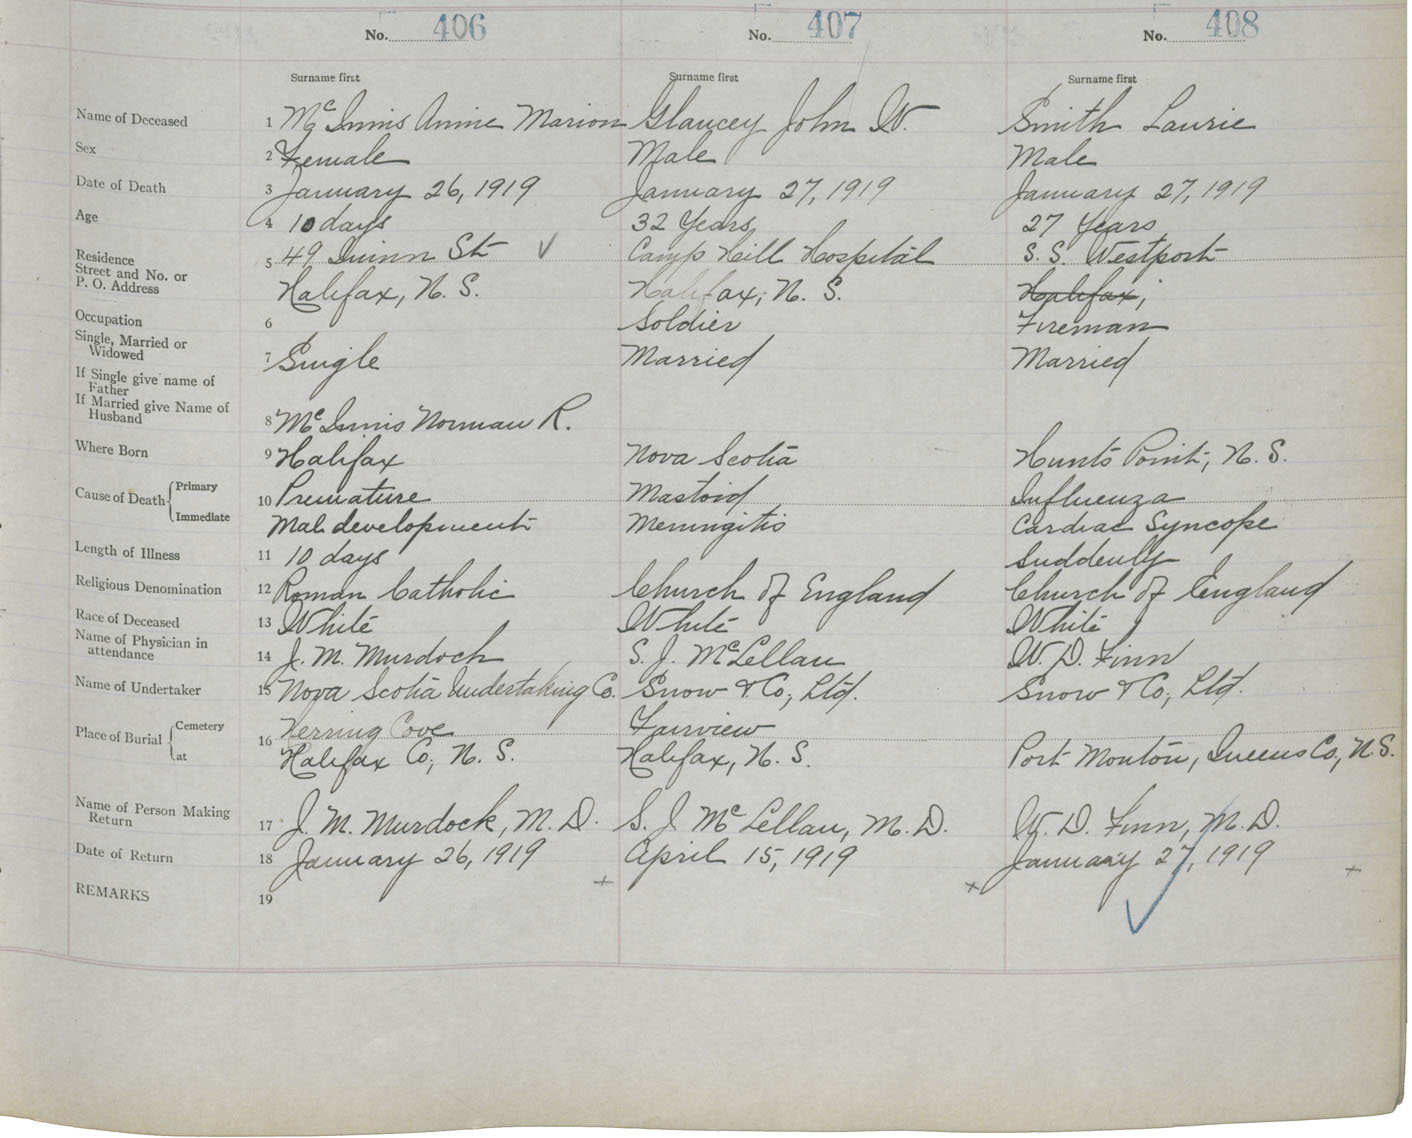 No. 406 No. 407 No. 408
Surname first Surname first Surname first
Name of Deceased 1 McInnis Annie Marion Glancey John W. Smith Laurie
Sex 2 Female Male Male
Date of Death 3 January 26, 1919 January 27, 1919 January 27, 1919
Age 4 10 days 32 Years 27 Years
Residence 5 49 Quinn St Camp Hill Hospital S. S. Westport
Street and No. or
P. O. Address Halifax, N. S. Halifax, N. S. Halifax,
Occupation 6 Soldier Fireman
Single, Married or
Widowed 7 Single Married Married
If Single give name of
Father
If Married give Name of
Husband 8 McInnis Norman R.
Where Born 9 Halifax Nova Scotia Hunts Point, N. S.
Cause of Death Primary 10 Premature Mastoid Influenza
Immediate Mal development Meningitis Cardiac Syncope
Length of Illness 11 10 days Suddenly
Religious Denomination 12 Roman Catholic Church of England Church of England
Race of Deceased 13 White White White
Name of Physician in
attendance 14 J. M. Murdock S. J. McLellan W. D. Finn
Name of Undertaker 15 Nova Scotia Undertaking Co. Snow & Co., Ltd. Snow & Co., Ltd.
Place of Burial Cemetery 16 Herring Cove Fairview
at Halifax Co., N. S. Halifax, N. S. Port Mouton, Queens Co., N. S.
Name of Person Making
Return 17 J. M. Murdock, M. D. S. J. McLellan, M. D. W. D. Finn, M. D.
Date of Return 18 January 26, 1919 April 15, 1919 January 27, 1919
REMARKS 19